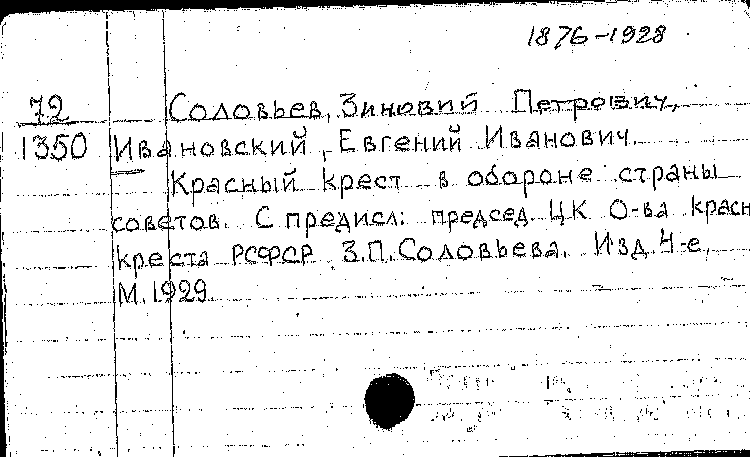 1876-1928
72 Соловьев, Зиновий Петрович,
1350 Ивановский, Евгений Иванович.
Красный крест в обороне страны
советов. С предисл: председ. ЦК О-ва красн
креста РСФСР З.П.Соловьева. Изд.4-е,
М.1929.